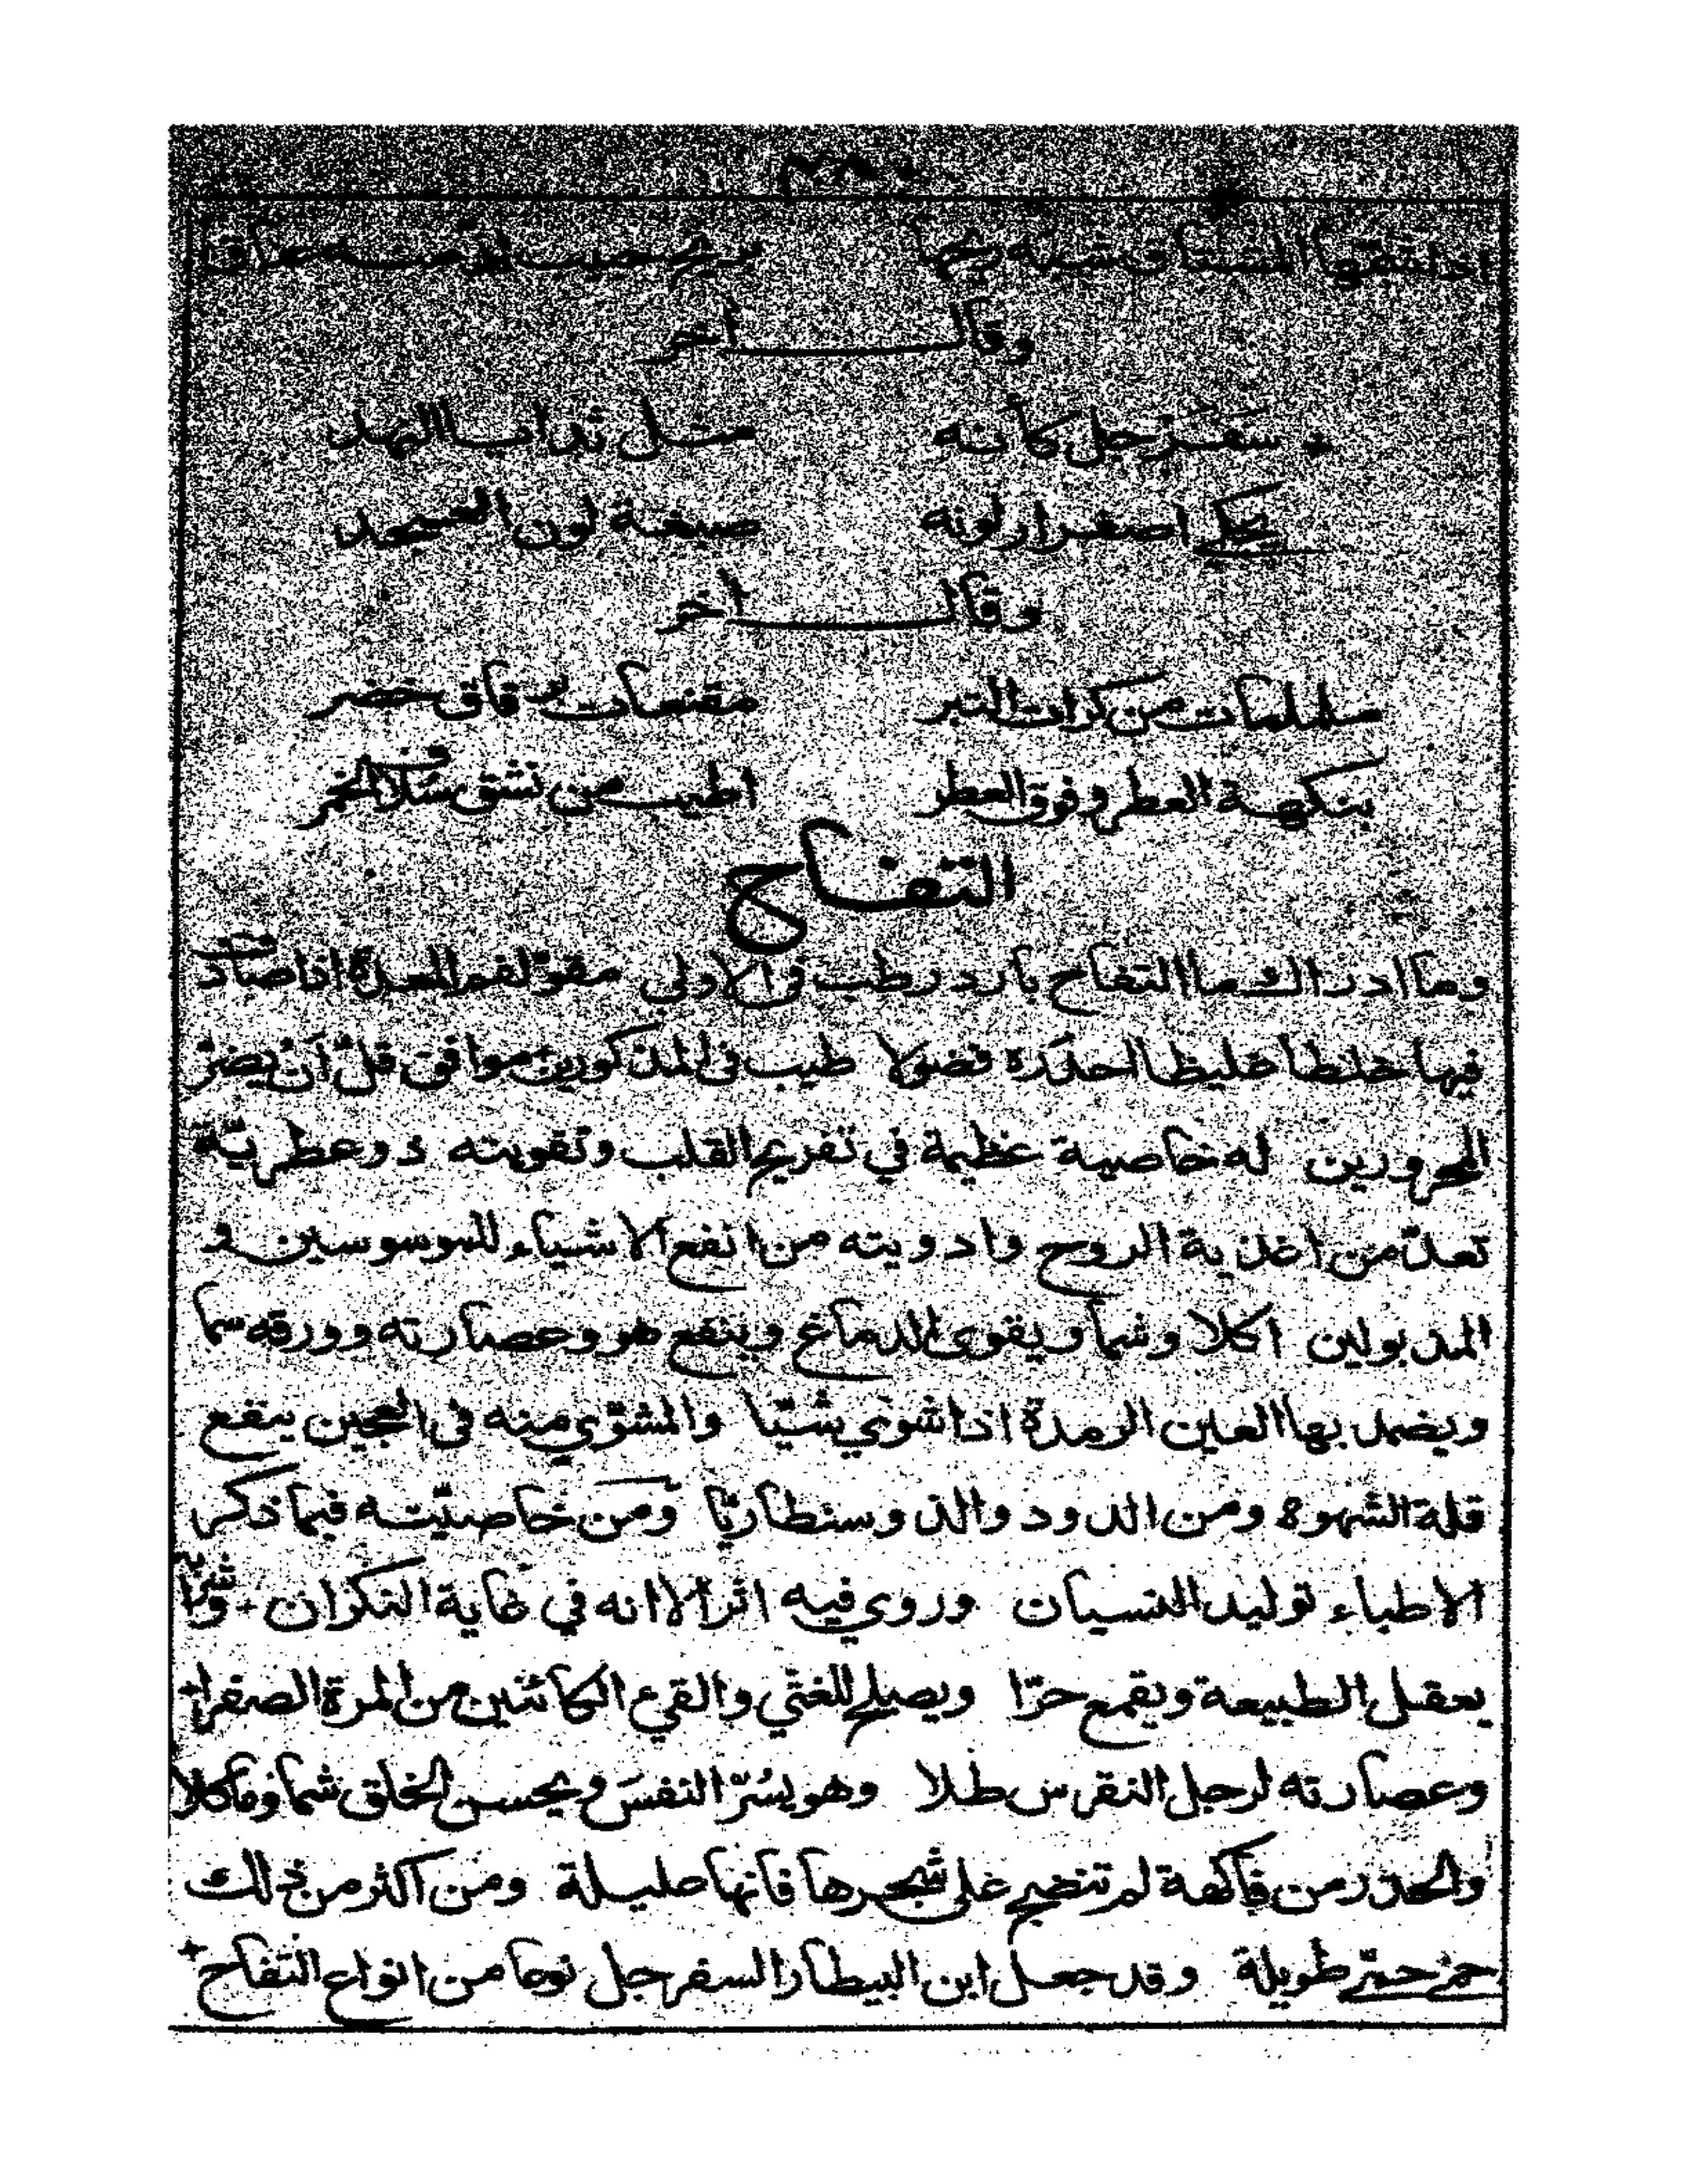 اذا شقها المشتاق شبه ريحها بريح حبيب
وقال اخر
سفرجل كأنه مثل ثداب النهد
يحكي اصفرار لونه صبغة لون العسجد
وقال اخر
ململمات من كرات التبر مقنعات برقاق خضر
بنكهة العطر وفوق العطر اطيب من نشق سلاف الخمر
التفاح
وما ادراك ما التفاح بارد رطب في الاولى مقو لفم المعدة اذا صادف
فيها خلطا غليظا احدره فضولا طيب في المذكورين موافق قل ان يضر
المحرورين له خاصية عظيمة في تفريح القلب وتقويته ذو عطرية
تعد من اغذية الروح وادويته من انفع الاشياء للموسوسين و
المذبولين اكلا وشما ويقوى الدماغ وينفع هو وعصارته وورقه سما
ويضمد بها العين الرمدة اذا شوي شيا والمشوي منه فى العجين ينفع
قلة الشهوة ومن الدود والذوسنطاريا ومن خاصيته فيما ذكر
الاطباء توليد النسيان وروي فيه اثر الا انه في غاية النكران
يعقل الطبيعة ويقمع حرا ويصلح للغثي والقيء الكائنين من المرة الصفرا
وعصارته لرجل النقرس طلا وهو يسر النفس ويحسن الخلق شما وماكلا
والحذر من فاكهة لم تنضج على شجرها فانها عليلة ومن اكثر من ذلك
حم حمى طويلة وقد جعل ابن البيطار السفرجل نوعا من انواع التفاح